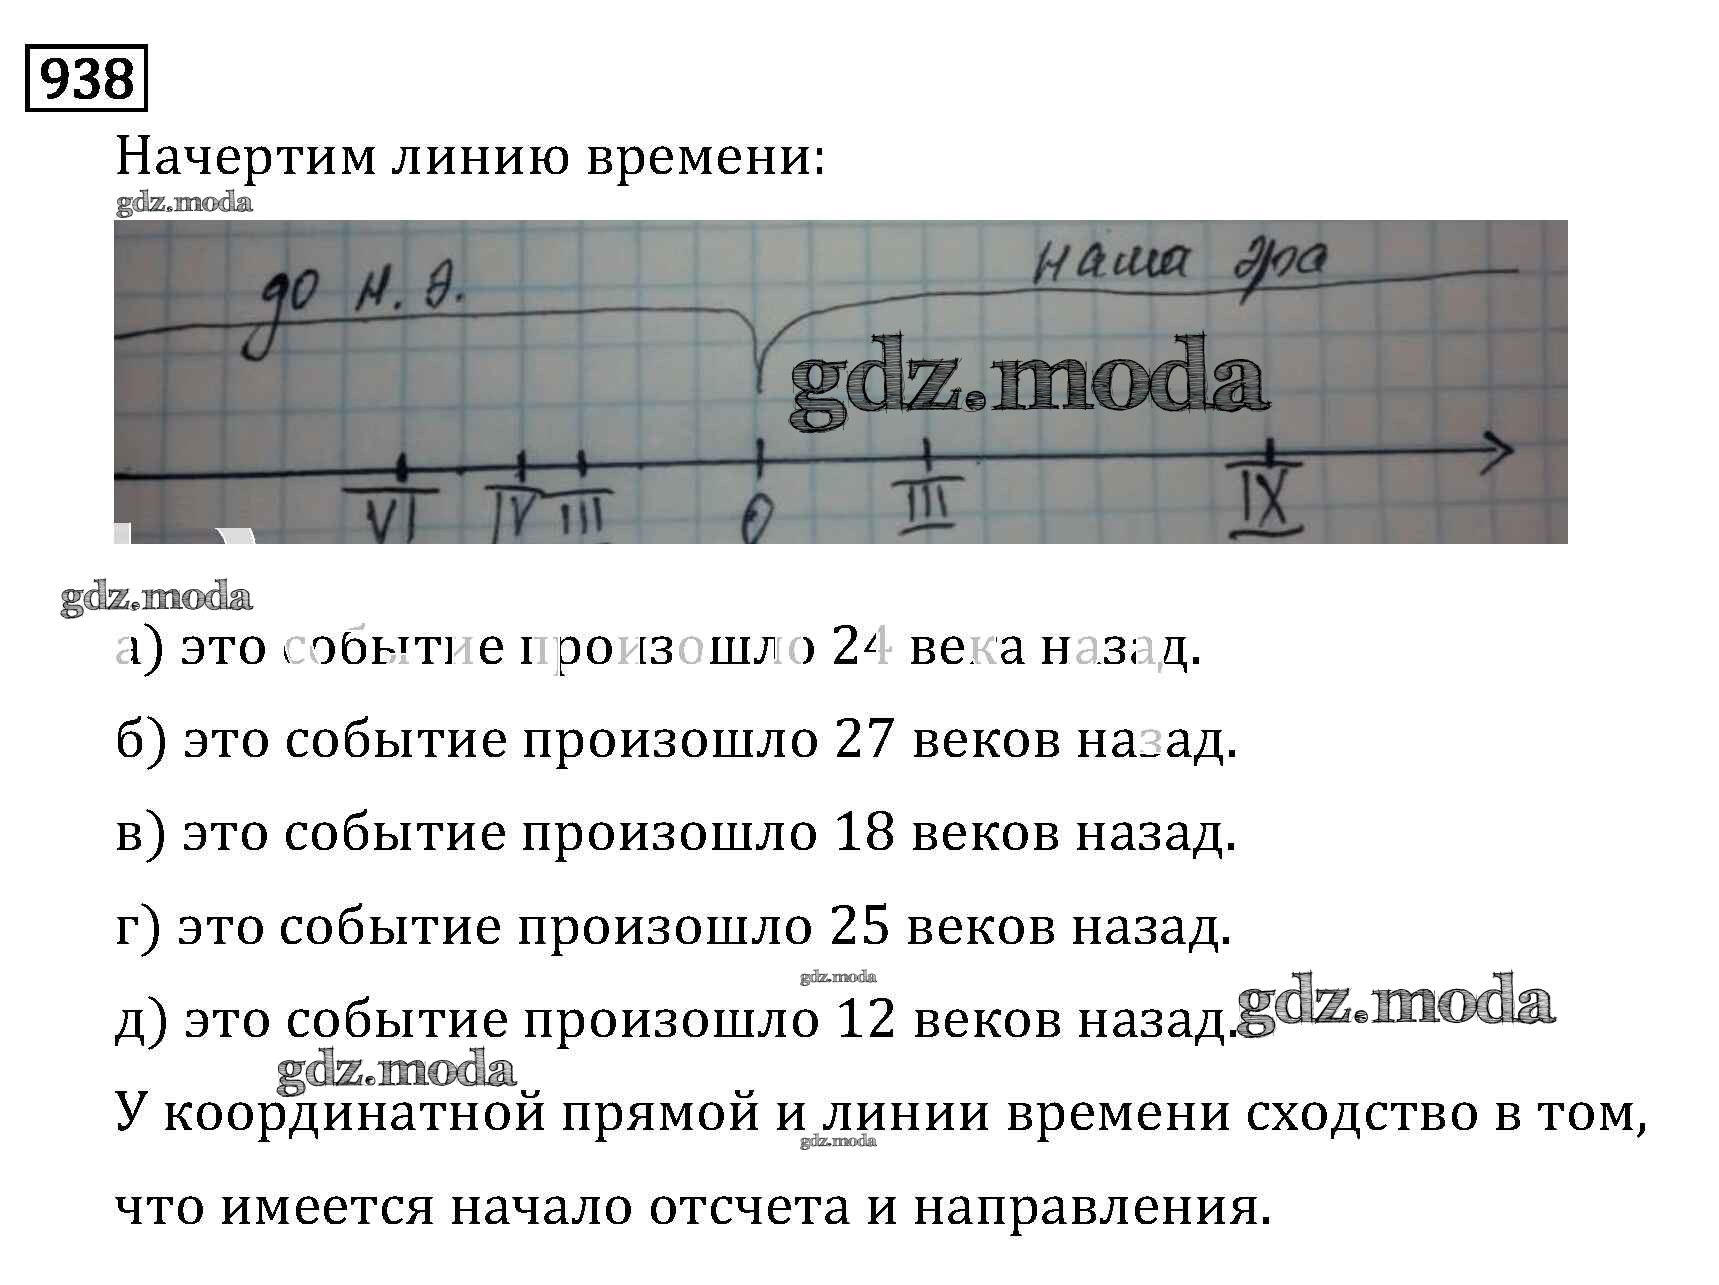 938
Начертим линию времени:
gdz.moda
до н. э.
наша эра
gdz.moda
VI IV III 0 III IX
gdz.moda
а) это событие произошло 24 века назад.
б) это событие произошло 27 веков назад.
в) это событие произошло 18 веков назад.
г) это событие произошло 25 веков назад.
gdz.moda
д) это событие произошло 12 веков назад.
gdz.moda
gdz.moda
У координатной прямой и линии времени сходство в том,
gdz.moda
что имеется начало отсчета и направления.